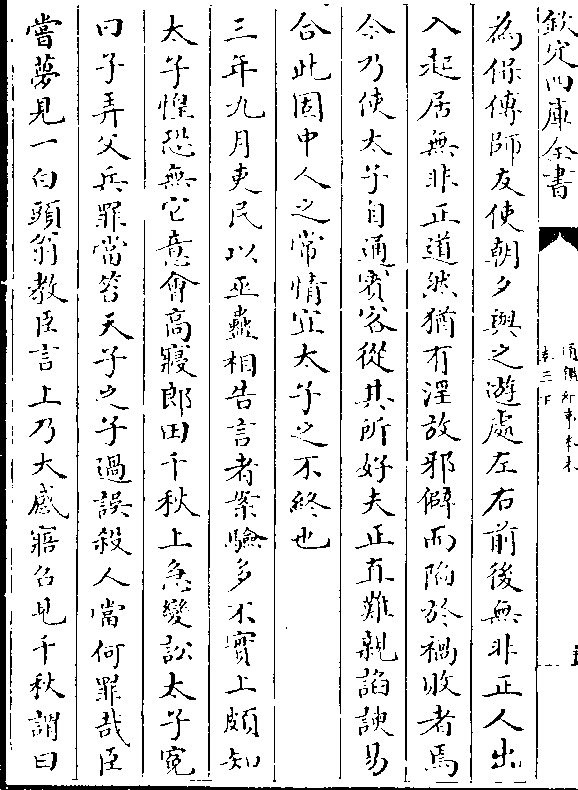 欽定四庫全書
通鑑紀事本末
卷三下
為保傅師友使朝夕與之遊處左右前後無非正人出
入起居無非正道然猶有淫放邪僻而陷於禍敗者焉
今乃使太子自通賓客從其所好夫正直難親諂諛易
合此固中人之常情宜太子之不終也
三年九月吏民以巫蠱相告言者案驗多不實上頗知
太子惶恐無它意會高寢郎田千秋上急變訟太子寃
曰子弄父兵罪當笞天子之子過誤殺人當何罪哉臣
嘗夢見一白頭翁教臣言上乃大感寤召見千秋謂曰